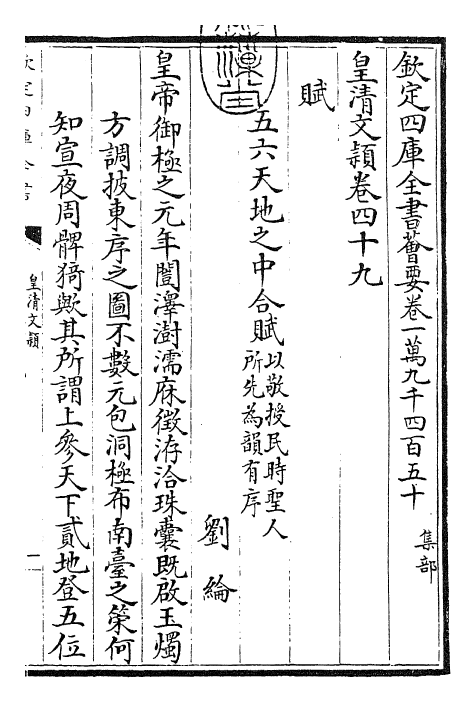 欽定四庫全書薈要卷一萬九千四百五十
集部
皇清文穎卷四十九
賦
五六天地之中合賦
以敬授民時聖人
所先為韻有序
劉綸
皇帝御極之元年闓澤澍濡庥徵洊洽珠囊既啟玉燭
方調披東序之圖不數元包洞極布南臺之策何
知宣夜周髀猗歟其所謂上參天下貳地登五位
皇清文穎
一